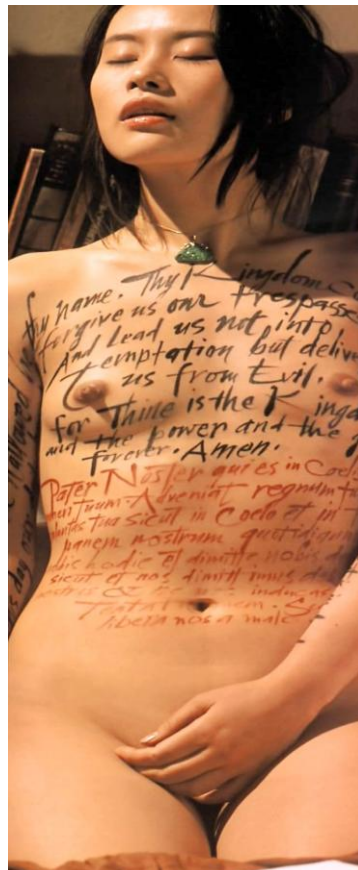 thy name. Thy Kingdom
forgive us our trespasse
And lead us not into
Temptation but deliv
us from Evil.
for Thine is the Kingd
and the power and the
forever. Amen.
Pater Noster qui es in Coel
Adveniat regnum t
tua sicut in Coelo et in
panem nostrum quotidian
hodie et dimitte nobis d
sicut et nos dimittimus
libera nos a malo